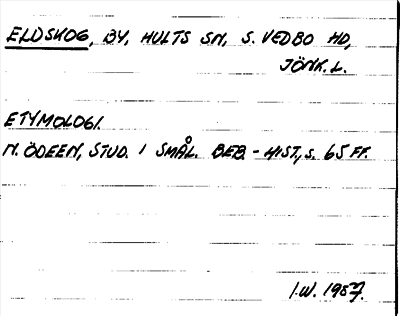 ELDSKOG, BY, HULTS SN, S. VEDBO HD,
JÖNK. L.
ETYMOLOGI.
N. ÖDEEN, STUD. I SMÅL. BEB. - HIST., S. 65 FF.
I.W. 1987.